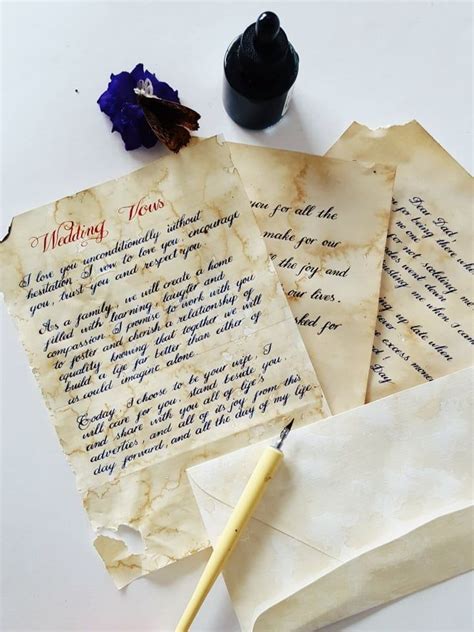 Wedding Vous
I love you unconditionally without
hesitation. I vow to love you, encourage
you, trust you and respect you.
As a family, we will create a home
filled with learning, laughter and
compassion. I promise to work with you
to foster and cherish a relationship of
equality knowing that together we will
build a life far better than either of
us could imagine alone.
Today, I choose to be your wife. I
will care for you, stand beside you,
and share with you all of life's
adverties, and all of its joy from this
day forward, and all the day of my life.
you for all the
make for our
the joy and
our lives.
sked for
Dear Dad,
for being there
no one
not scolding
went down
me when
up late when
excess money